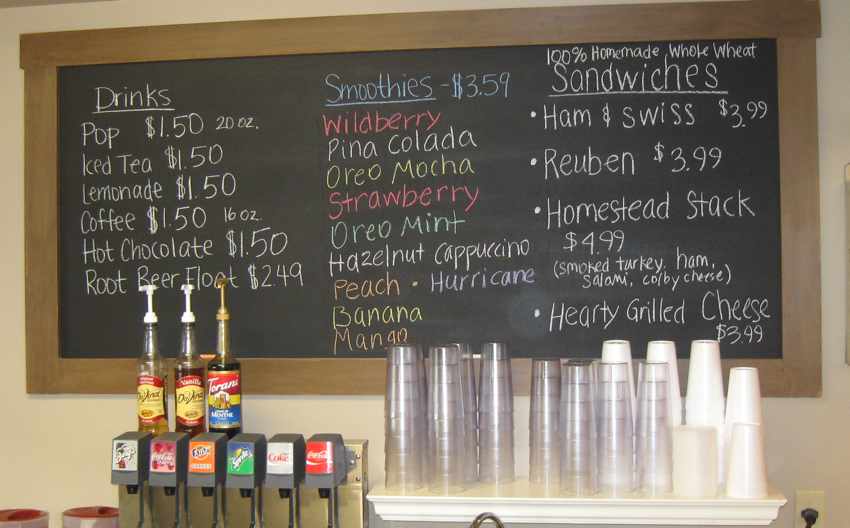 Drinks
Pop $1.50 20 oz.
Iced Tea $1.50
Lemonade $1.50
Coffee $1.50 16 oz.
Hot Chocolate $1.50
Root Beer Float $2.49
Smoothies - $3.59
Wildberry
Pina Colada
Oreo Mocha
Strawberry
Oreo Mint
Hazelnut Cappuccino
Peach • Hurricane
Banana
Mango
100% Homemade Whole Wheat
Sandwiches
• Ham & Swiss $3.99
• Reuben $3.99
• Homestead Stack
$4.99
(smoked turkey, ham,
salami, colby cheese)
• Hearty Grilled Cheese
$3.99
DaVinci
Vanilla
DaVinci
Torani
MENTHE
Sprite
Coke
Coca-Cola